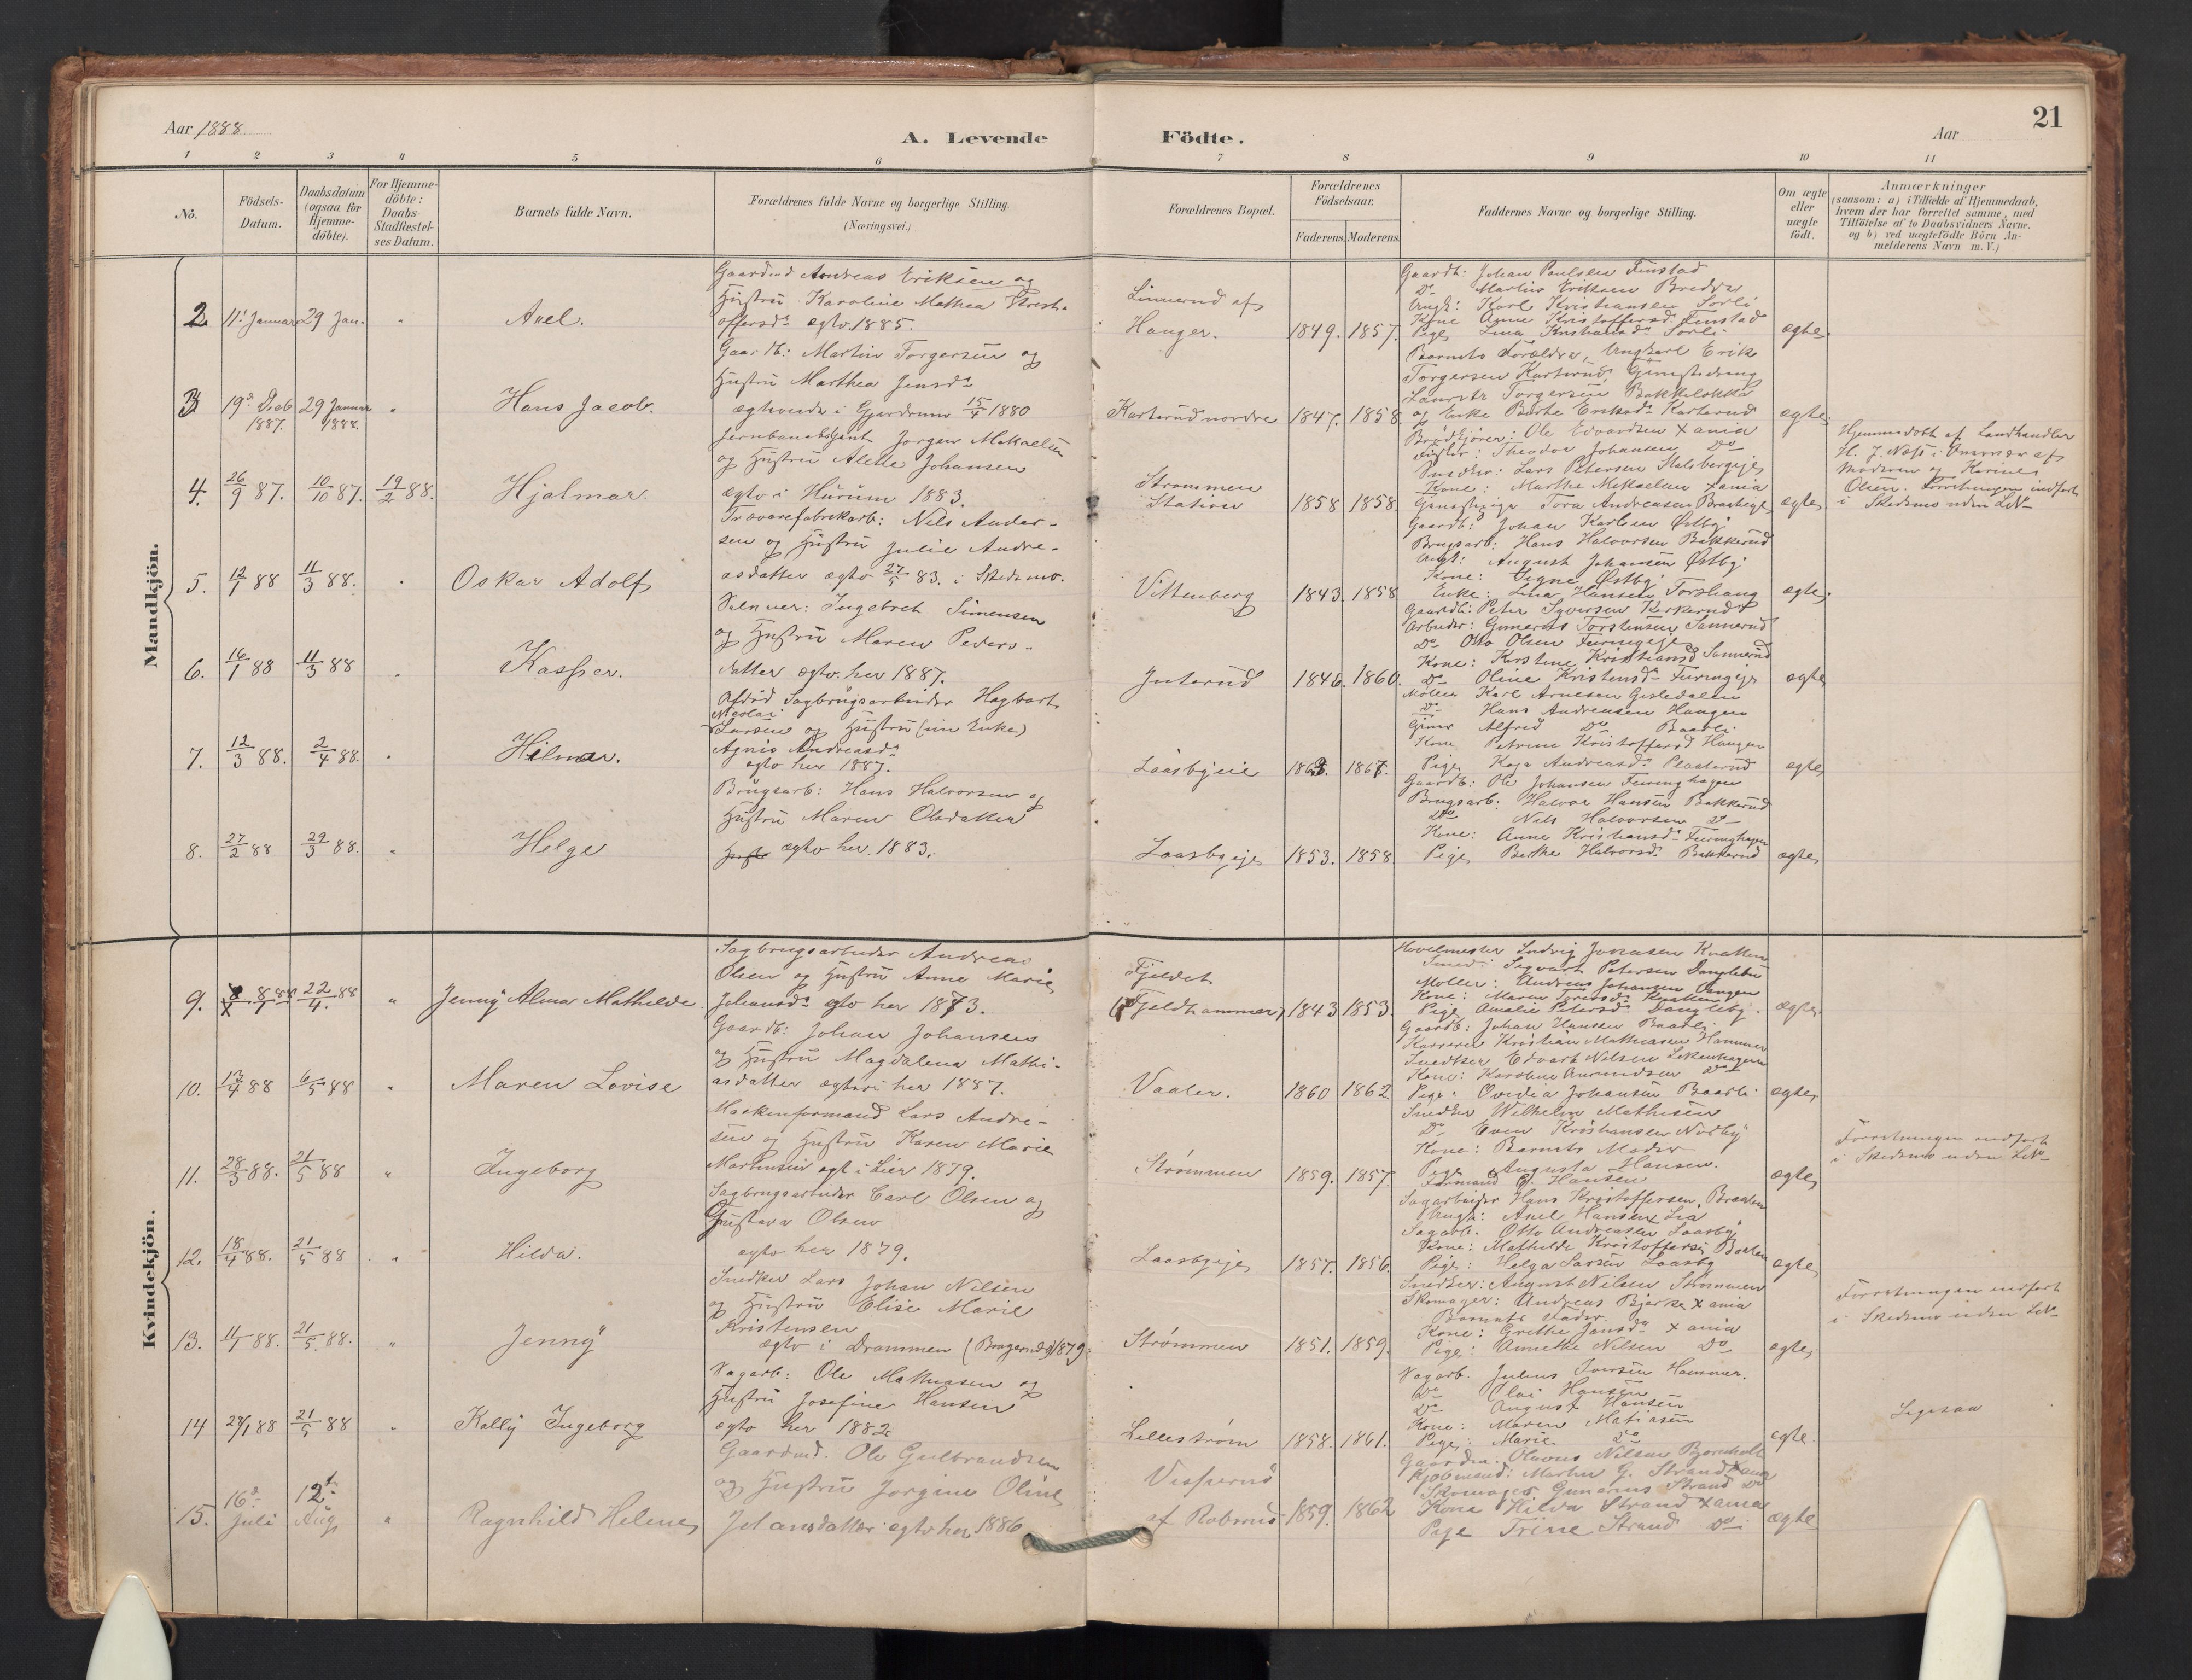 Aar 1888
A. Levende Födte.
Aar
21
1 2 3 4 5 6 7 8 9 10 11
No.
Födsels-Datum.
Daabsdatum (ogsaa for Hjemme-döbte).
For Hjemme-döbte: Daabs-Stadfæstel-ses Datum.
Barnets fulde Navn.
Forældrenes fulde Navne og borgerlige Stilling. (Næringsvei.)
Forældrenes Bopæl.
Forældrenes Födselsaar.
Faderens. Moderens.
Faddernes Navne og borgerlige Stilling.
Om ægte eller uægte födt.
Anmærkninger
(saasom: a) i Tilfælde af Hjemmedaab,
hvem der har forrettet samme, med
Tilföielse af to Daabsvidners Navne,
og b) ved uægtefödte Börn An-
melderens Navn m. V.)
Mandkjön.
2. 11' Januar 29 Jan. " Axel.
Gaardmd Andreas Eriksen og
Hustru Karoline Mathea Krist-
offersdr ægtv 1885.
Linnerud af
Hauger. 1849. 1857.
Gaardb: Johan Paulsen Finstad
Do Martin Eriksen
Ungk: Karl Kristiansen Sorli
Kone Anne Kristoffersdr Finstad
Pige Lina Kristiansdr Sorli
ægte.
3 19d Decb 1887. 29 Januar 1888. " Hans Jacob.
Gaardb: Martin Torgersen og
Hustru Marthea Jensdr
ægteviede i Gjerdrum 15/4 1880
Karterud nordre 1847. 1858.
Barnets Forældre, Ungkarl Erik
Torgersen Karterud,
Lauritz Torgersen Bakkeløkka
og Enke Berthe Eriksdr Karterud
ægte.
4. 26/9 87. 10/10 87. 19/2 88. Hjalmar.
Jernbanebetjent Jørgen Mikaelsen
og Hustru Alette Johansen
ægtv i Hurum 1883.
Strømmen
Station 1858 1858.
Brødkjører: Ole Edvardsen Xania
Theodor Johansen Do
Snedker: Lars Petersen Stalsbergeje
Kone: Marthe Mikaelsen Xania
Tora Andreasen
ægte
Hjemmedøbt af Landhandler
H. J. Næss i Nærvær af
Moderen og Karine
Olsen. Forretningen indført
i Skedsmo uden LNo
5. 12/1 88 11/3 88. " Oskar Adolf
Trævarefabrikarb: Nils Ander-
sen og Hustru Julie Andre-
asdatter ægtv 27/5 83. i Skedsmo.
Vittenberg 1843. 1858
Gaardb: Johan Karlsen Østby
Brugsarb: Hans Halvorsen Bakkerud
Ungk: August Johansen Østby
Kone: Signe Østby
Enke: Lina Hansen Torshaug
ægte.
6. 16/1 88 11/3 88 " Kasper.
Ingebret Simensen
og Hustru Maren Peders-
datter ægtv. her 1887.
Juterud 1846. 1860.
Gaardb: Peter Syversen Karkerud
Arbeider: Gunerius Torstensen Sannerud
Do Otto Olsen Furingeje
Kone: Kirstine Kristiansd Sannerud
Do Oline Kristensdr Furingeje
ægte
7. 12/3 88. 2/4 88. " Hilmar.
Afdød Sagbrugsarbeider Hagbart
Nicolai
Larsen og Hustru (nu Enke)
Agnes Andreasdr
ægtv her 1887.
Laasbyeie 1863. 1867.
Møller Karl Arnesen Gisledalen
Do Hans Andreasen Haugen
Alfred Do Baarli
Kone Petrine Kristoffersd Haugen
Pige Kaja Andreasdr
ægte
8. 27/2 88 29/3 88. " Helge
Brugsarb: Hans Halvorsen og
Hustru Maren Olsdatter
ægtv her. 1883.
Laasbyeje 1853. 1858
Gaardb: Ole Johansen Furinghagen
Brugsarb. Halvor Hansen Bakkerud
Do Nils Halvorsen Do
Kone: Anne Kristiansdr Furinghagen
Pige Berthe Halvorsdr Bakkerud
ægte
Kvindekjön.
9. 8/1 88 22/4. 88 " Jenny Alma Mathilde.
Sagbrugsarbeider Andreas
Olsen og Hustru Anne Marie
Johansdr ægtv her 1873.
Fjeldet
(Fjeldhammer) 1843 1853.
Høvelmester Ludvig Knatten
Smed: Sigvart Petersen
Møller: Andreas Johansen Haugen
Kone: Maren Knatten
Pige Amalie Petersdr
ægte.
10. 13/4 88 6/5 88 " Maren Lovise
Gaardb: Johan Johansen
og Hustru Magdalena Mathi-
asdatter ægtev. her 1887.
Vaaler. 1860 1862
Gaardb: Johan Hansen Baarli
Kristian Mathiasen Hammer
Snedker Edvart Nilsen
Kone: Karoline Amundsen Do
Pige: Ovidia Johansen Baarli
ægte,
11. 28/3 88. 21/5 88 " Ingeborg
Maskinformand Lars Andre-
sen og Hustru Karen Marie
Martinsen egt i Lier 1879.
Strømmen 1859. 1857.
Snedker Wilhelm Mathisen
Do Even Kristiansen Nordby
Kone: Barnets Moder
Pige Augusta Hansen.
Formand G. Hansen
ægte
Forretningen indført
i Skedsmo uden LNo
12. 18/4 88. 21/5 88 " Hilda.
Sagbrugsarbeider Carl Olsen og
Gustava Olsen
ægtv her 1879.
Laasbyeje 1857. 1856.
Sagarbeider Hans Kristoffersen Braaten
Ungk: Axel Hansen Lia
Sagarb. Otto Andreasen Laasby
Kone: Mathilde Kristoffersd Braaten
Pige: Helga Larsen Laasby
ægte
13. 11/1 88. 21/5. 88. " Jenny
Snedker Lars Johan Nilsen
og Hustru Elise Marie
Kristensen
ægtv i Drammen (Bragernes) 1879.
Strømmen 1851. 1859.
Snedker: August Nilsen Strømmen
Skomager: Andreas Bjerke Xania
Barnets Fader.
Kone: Grethe Jonsdr Xania
Pige: Annette Nilsen Do
ægte,
Forretningen indført
i Skedsmo uden LNo
14 29/1 88 21/5 88 " Kally Ingeborg
Sagarb: Ole Mathiasen og
Hustru Josefine Hansen
ægtv her 1882
Lillestrøm 1858. 1861.
Sagarb. Julius Iversen Hammer.
Do Olai Hansen
Do August Hansen
Kone: Maren Matiasen
Pige: Marie Do
ægte.
Ligesaa
15. 16d Juli 12t Aug " Ragnhild Helene
Gaardmd. Ole Gulbrandsen
og Hustru Jørgine Oline
Johansdatter ægtv her 1886
af Robsrud 1859. 1862
Gaardm. Olavus Nilsen Bjørnholt
Kjøbmand: Martin G. Strand Xania
Skomager Gunerius Strand Do
Kone Hilda Strand Xania
Pige Trine Strand Do
ægte